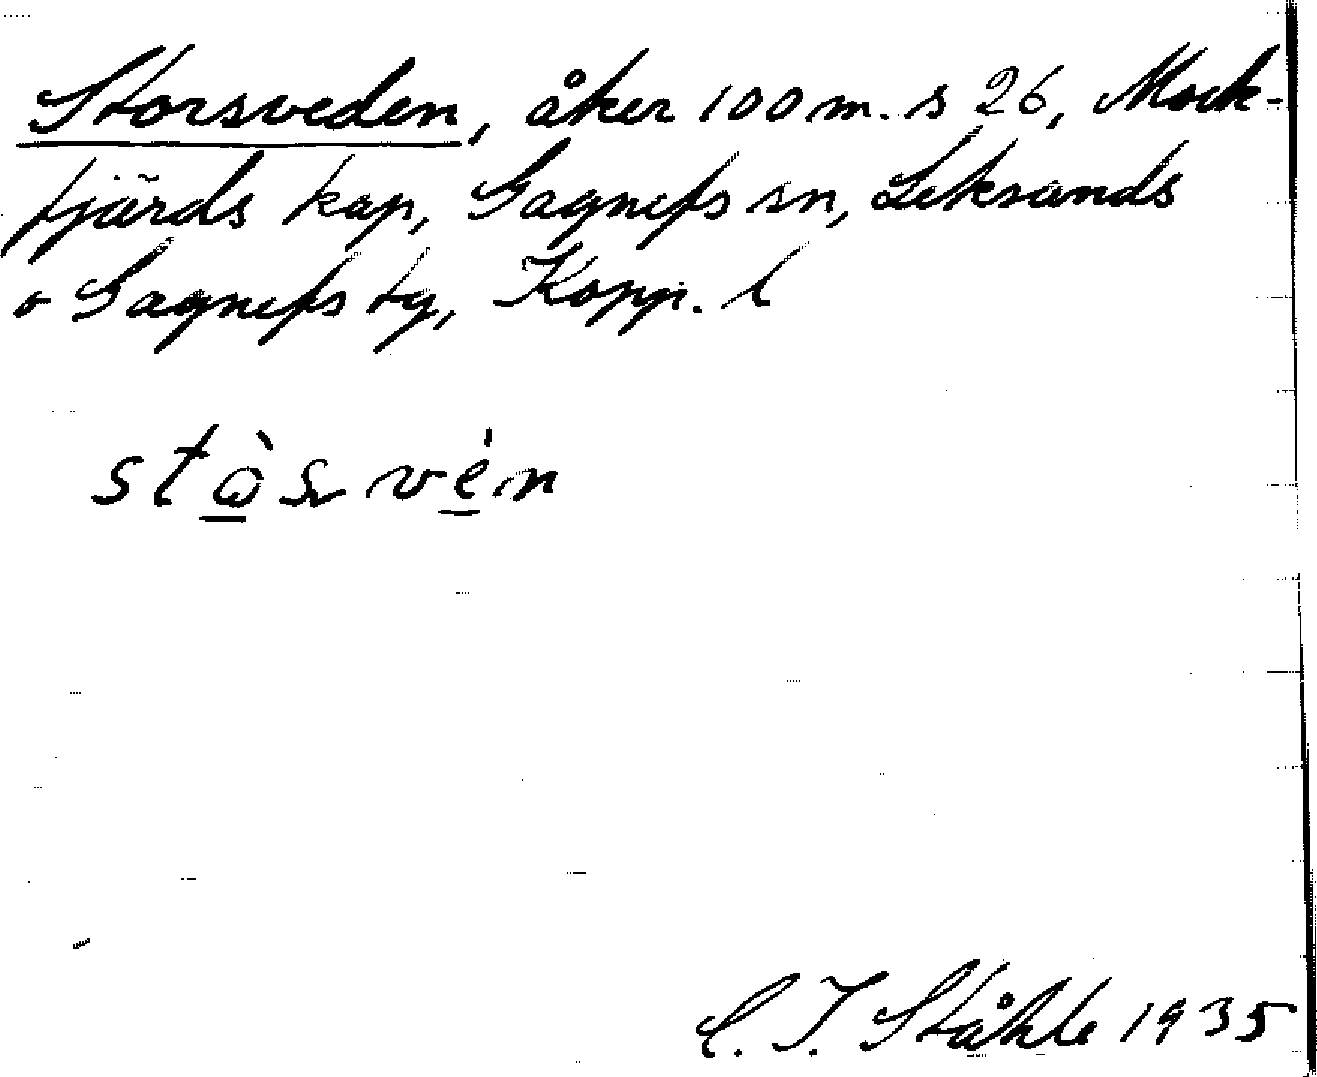 Storsveden, åker 100 m. s 26, Mock-
fjärds kap, Gagnefs sn, Leksands
o Gagnefs tg, Kopp. l
C. I. Ståhle 1935